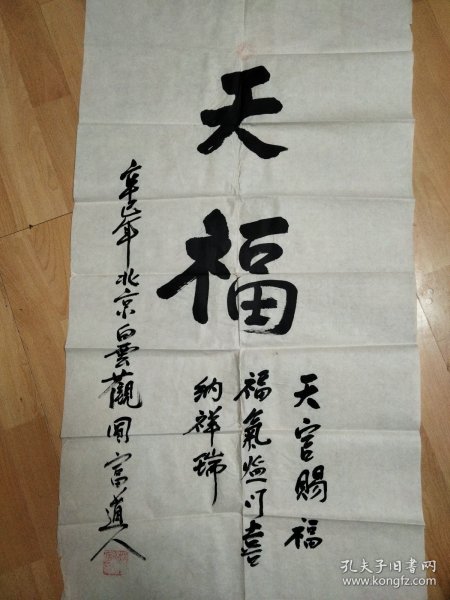 天福
天官賜福
福氣盈门喜
纳祥瑞
辛巳年北京白雲觀富道人
孔夫子旧书网
www.kongfz.com